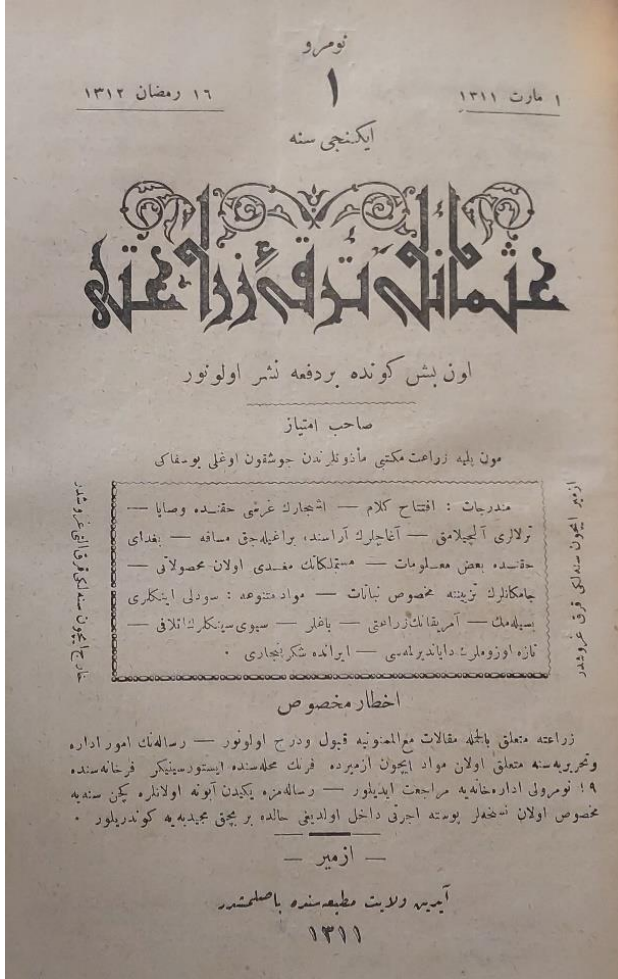 نومرو
١
١ مارت ١٣١١
١٦ رمضان ١٣١٢
ایکنجی سنه
عثمانلی ترقئ زراعتی
اون بش كونده بردفعه نشر اولونور
صاحب امتیاز
مون پلیه زراعت مكتبی مأذونلرندن جوشقون اوغلی یوسفاكی
ازمیر ایچون سنه لكی قرق غروشدر
مندرجات : افتتاح كلام — اشجارك غرسی حقنده وصایا —
ترلالری آلچیلامق — آغاچلرك آراسنده براغیله جق مسافه — بغدای
حقنده بعض معلومات — مستملكاتك مفدی اولان محصولاتی —
جامكانلرك تزییننه مخصوص نباتات — مواد متنوعه : سودلی اینكلری
بسیله مك — آمریقانك زراعتی — یاغلر — سیوی سینكلرك اتلافی —
تازه اوزوملرك دایاندیرلمه سی — ایرانده شكر پنجاری ٠
خارج ایچون سنه لكی قرق التی غروشدر
اخطار مخصوص
زراعته متعلق بالجمله مقالات مع الممنونیه قبول ودرج اولونور — رساله نك امور اداره
وتحریریه سنه متعلق اولان مواد ایچون ازمیرده فرنك محله سنده ایستورسینیكر فرخانه سنده
نومرولی اداره خانه یه مراجعت ایدیلور — رساله مزه یكیدن آبونه اولانلره كچن سنه یه
مخصوص اولان نسخه لر پوسته اجرتی داخل اولدیغی حالده بر بچق مجیدیه یه كوندریلور ٠
— ازمیر —
آیدین ولایت مطبعه سنده باصلمشدر
١٣١١